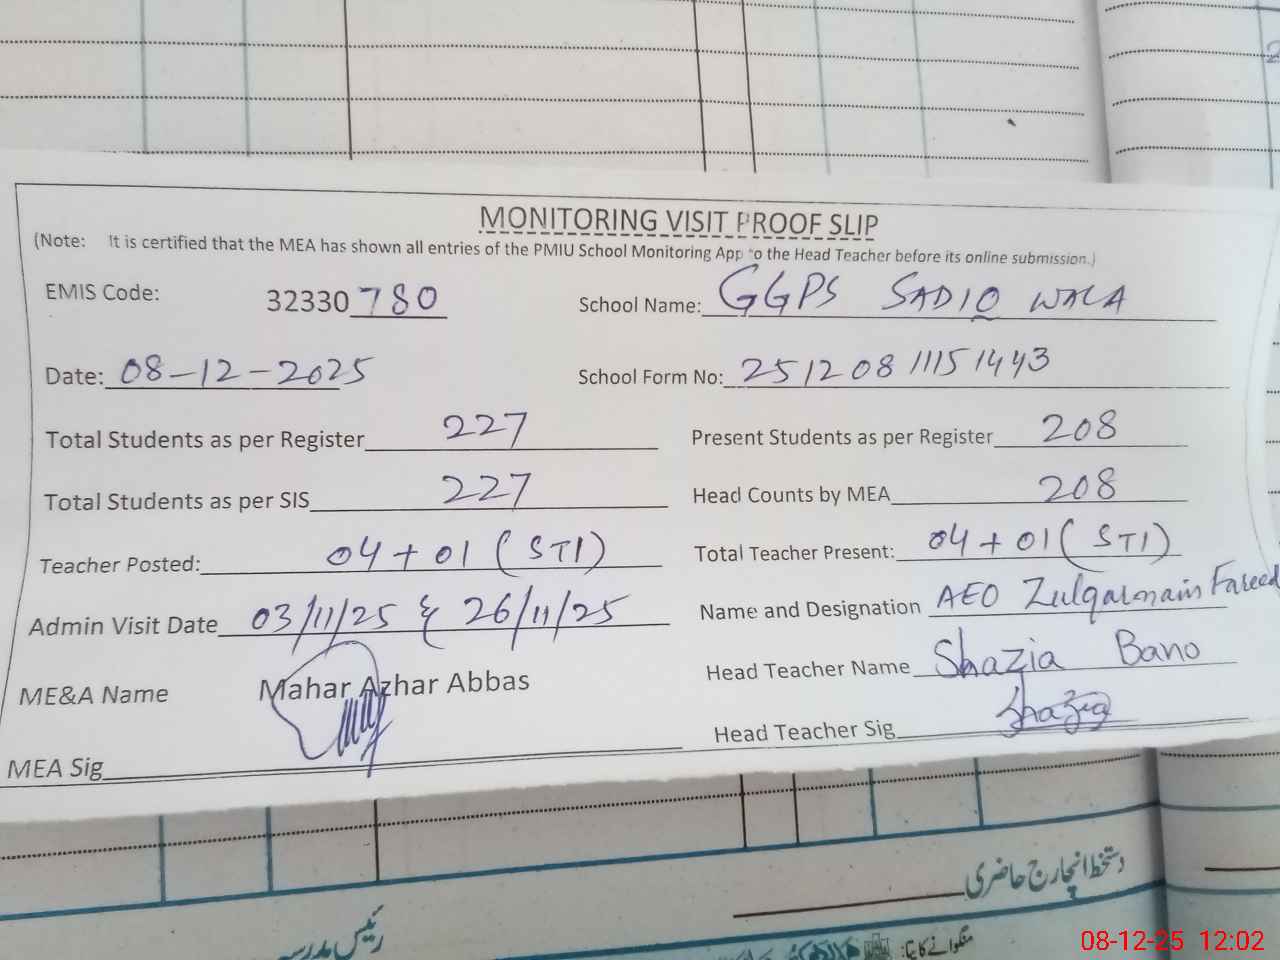 MONITORING VISIT PROOF SLIP
(Note: It is certified that the MEA has shown all entries of the PMIU School Monitoring App to the Head Teacher before its online submission.)
EMIS Code: 32330780 School Name: GGPS SADIQ WALA
Date: 08-12-2025 School Form No: 25120811151443
Total Students as per Register 227 Present Students as per Register 208
Total Students as per SIS 227 Head Counts by MEA 208
Teacher Posted: 04 + 01 (STI) Total Teacher Present: 04 + 01 (STI)
Admin Visit Date 03/11/25 & 26/11/25 Name and Designation AEO Zulqarnain Fareed
ME&A Name Mahar Azhar Abbas Head Teacher Name Shazia Bano
MEA Sig Head Teacher Sig Shazia
دستخط انچارج حاضری
رئیس مدرسہ
منگوانے کا پتہ:
08-12-25 12:02